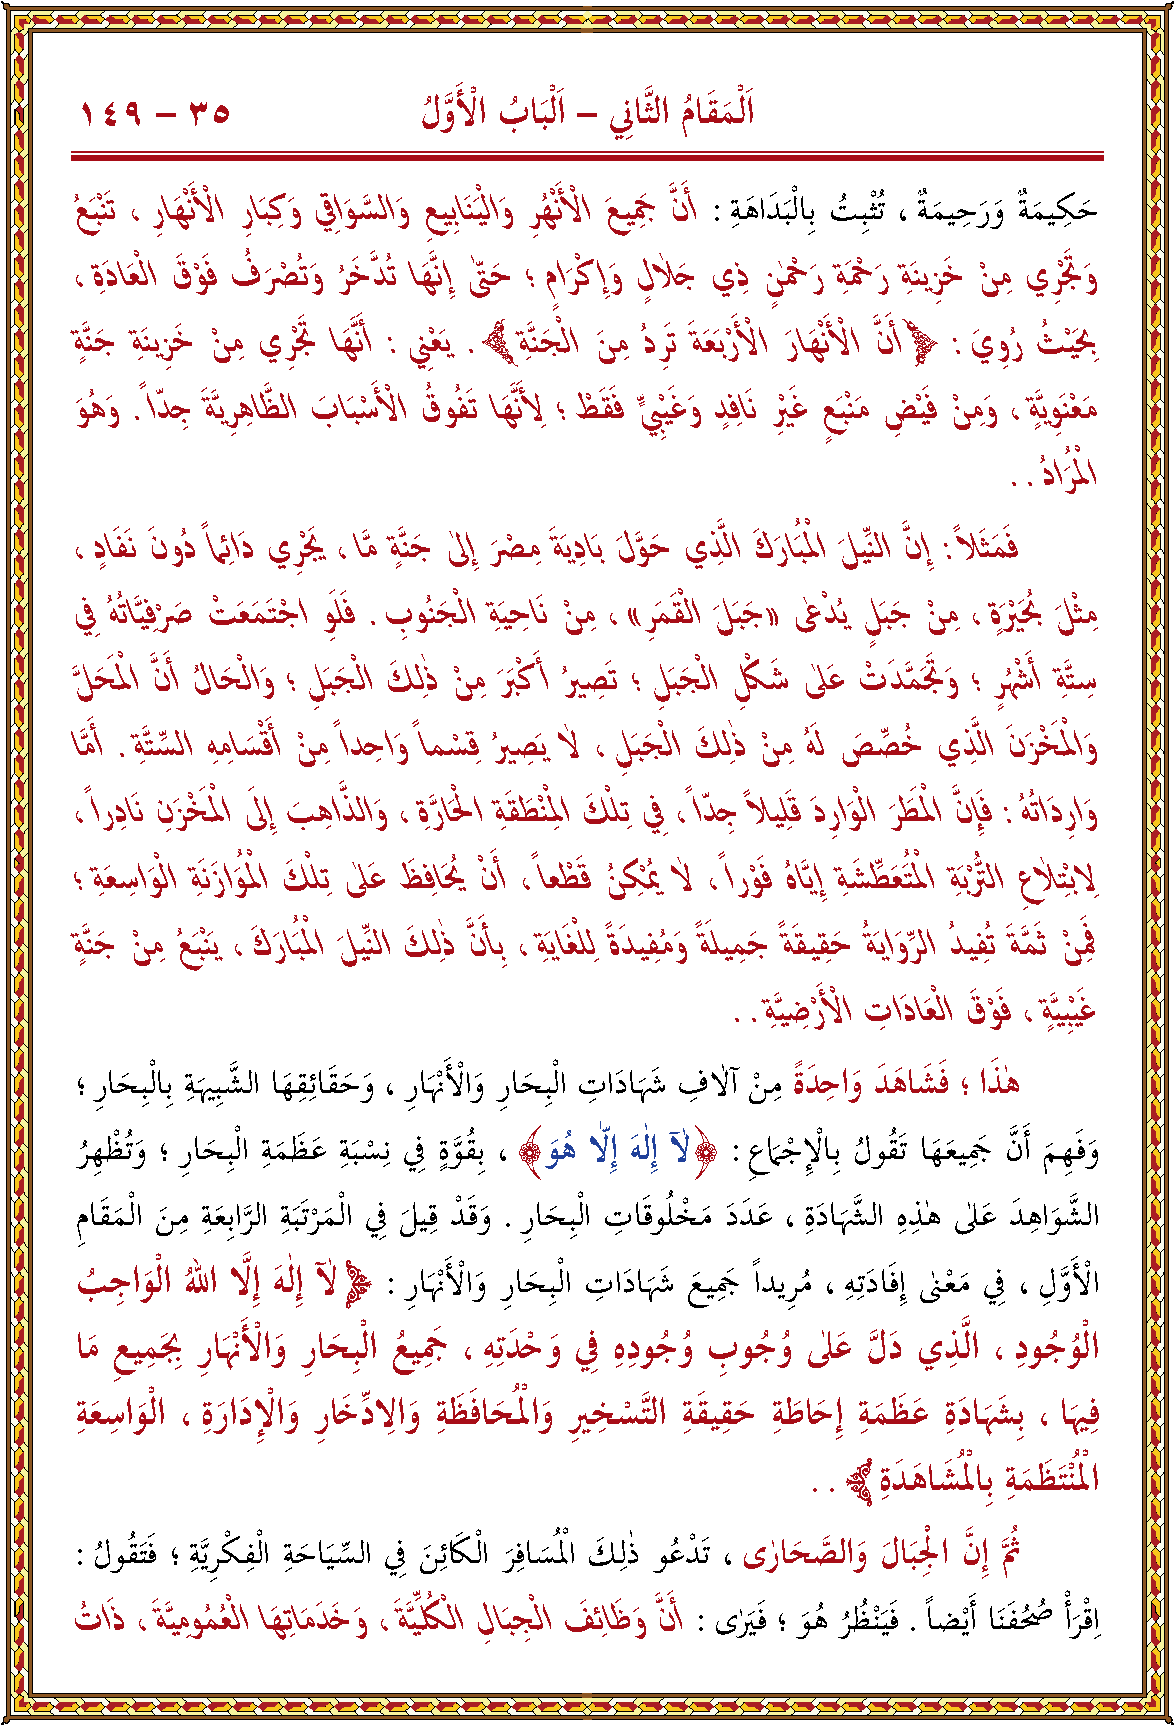 اَلْمَقَامُ الثَّانِي – اَلْبَابُ الْأَوَّلُ ٣٥ – ١٤٩
حَكِيمَةٌ وَرَحِيمَةٌ ، تُثْبِتُ بِالْبَدَاهَةِ : أَنَّ جَمِيعَ الْأَنْهُرِ وَالْيَنَابِيعِ وَالسَّوَاقِي وَكِبَارِ الْأَنْهَارِ ، تَنْبَعُ
وَتَجْرِي مِنْ خَزِينَةِ رَحْمَةِ رَحْمٰنٍ ذِي جَلَالٍ وَإِكْرَامٍ ؛ حَتّٰى إِنَّهَا تُدَّخَرُ وَتُصْرَفُ فَوْقَ الْعَادَةِ ،
بِحَيْثُ رُوِيَ : ﴿أَنَّ الْأَنْهَارَ الْأَرْبَعَةَ تَرِدُ مِنَ الْجَنَّةِ﴾ . يَعْنِي : أَنَّهَا تَجْرِي مِنْ خَزِينَةِ جَنَّةٍ
مَعْنَوِيَّةٍ ، وَمِنْ فَيْضِ مَنْبَعٍ غَيْرِ نَافِدٍ وَغَيْبِيٍّ فَقَطْ ؛ لِأَنَّهَا تَفُوقُ الْأَسْبَابَ الظَّاهِرِيَّةَ جِدّاً . وَهُوَ
الْمُرَادُ . .
فَمَثَلاً : إِنَّ النِّيلَ الْمُبَارَكَ الَّذِي حَوَّلَ بَادِيَةَ مِصْرَ إِلٰى جَنَّةٍ مَّا ، يَجْرِي دَائِماً دُونَ نَفَادٍ ،
مِثْلَ بُحَيْرَةٍ ، مِنْ جَبَلٍ يُدْعٰى «جَبَلَ الْقَمَرِ» ، مِنْ نَاحِيَةِ الْجَنُوبِ . فَلَوِ اجْتَمَعَتْ صَرْفِيَّاتُهُ فِي
سِتَّةِ أَشْهُرٍ ؛ وَتَجَمَّدَتْ عَلٰى شَكْلِ الْجَبَلِ ؛ تَصِيرُ أَكْبَرَ مِنْ ذٰلِكَ الْجَبَلِ ؛ وَالْحَالُ أَنَّ الْمَحَلَّ
وَالْمَخْزَنَ الَّذِي خُصِّصَ لَهُ مِنْ ذٰلِكَ الْجَبَلِ ، لَا يَصِيرُ قِسْماً وَاحِداً مِنْ أَقْسَامِهِ السِّتَّةِ . أَمَّا
وَارِدَاتُهُ : فَإِنَّ الْمَطَرَ الْوَارِدَ قَلِيلاً جِدّاً ، فِي تِلْكَ الْمِنْطَقَةِ الْحَارَّةِ ، وَالذَّاهِبَ إِلَى الْمَخْزَنِ نَادِراً ،
لِابْتِلَاعِ التُّرْبَةِ الْمُتَعَطِّشَةِ إِيَّاهُ فَوْراً ، لَا يُمْكِنُ قَطْعاً ، أَنْ يُحَافِظَ عَلٰى تِلْكَ الْمُوَازَنَةِ الْوَاسِعَةِ ؛
فَمِنْ ثَمَّةَ تُفِيدُ الرِّوَايَةُ حَقِيقَةً جَمِيلَةً وَمُفِيدَةً لِلْغَايَةِ ، بِأَنَّ ذٰلِكَ النِّيلَ الْمُبَارَكَ ، يَنْبَعُ مِنْ جَنَّةٍ
غَيْبِيَّةٍ ، فَوْقَ الْعَادَاتِ الْأَرْضِيَّةِ . .
هٰذَا ؛ فَشَاهَدَ وَاحِدَةً مِنْ آلَافِ شَهَادَاتِ الْبِحَارِ وَالْأَنْهَارِ ، وَحَقَائِقِهَا الشَّبِيهَةِ بِالْبِحَارِ ؛
وَفَهِمَ أَنَّ جَمِيعَهَا تَقُولُ بِالْإِجْمَاعِ : ﴿لَآ إِلٰهَ إِلَّا هُوَ﴾ ، بِقُوَّةٍ فِي نِسْبَةِ عَظَمَةِ الْبِحَارِ ؛ وَتُظْهِرُ
الشَّوَاهِدَ عَلٰى هٰذِهِ الشَّهَادَةِ ، عَدَدَ مَخْلُوقَاتِ الْبِحَارِ . وَقَدْ قِيلَ فِي الْمَرْتَبَةِ الرَّابِعَةِ مِنَ الْمَقَامِ
الْأَوَّلِ ، فِي مَعْنٰى إِفَادَتِهِ ، مُرِيداً جَمِيعَ شَهَادَاتِ الْبِحَارِ وَالْأَنْهَارِ : ﴿لَآ إِلٰهَ إِلَّا اللهُ الْوَاجِبُ
الْوُجُودِ ، الَّذِي دَلَّ عَلٰى وُجُوبِ وُجُودِهِ فِي وَحْدَتِهِ ، جَمِيعُ الْبِحَارِ وَالْأَنْهَارِ بِجَمِيعِ مَا
فِيهَا ، بِشَهَادَةِ عَظَمَةِ إِحَاطَةِ حَقِيقَةِ التَّسْخِيرِ وَالْمُحَافَظَةِ وَالِادِّخَارِ وَالْإِدَارَةِ ، الْوَاسِعَةِ
الْمُنْتَظَمَةِ بِالْمُشَاهَدَةِ﴾ . .
ثُمَّ إِنَّ الْجِبَالَ وَالصَّحَارٰى ، تَدْعُو ذٰلِكَ الْمُسَافِرَ الْكَائِنَ فِي السِّيَاحَةِ الْفِكْرِيَّةِ ؛ فَتَقُولُ :
اِقْرَأْ صُحُفَنَا أَيْضاً . فَيَنْظُرُ هُوَ ؛ فَيَرٰى : أَنَّ وَظَائِفَ الْجِبَالِ الْكُلِّيَّةَ ، وَخَدَمَاتِهَا الْعُمُومِيَّةَ ، ذَاتُ